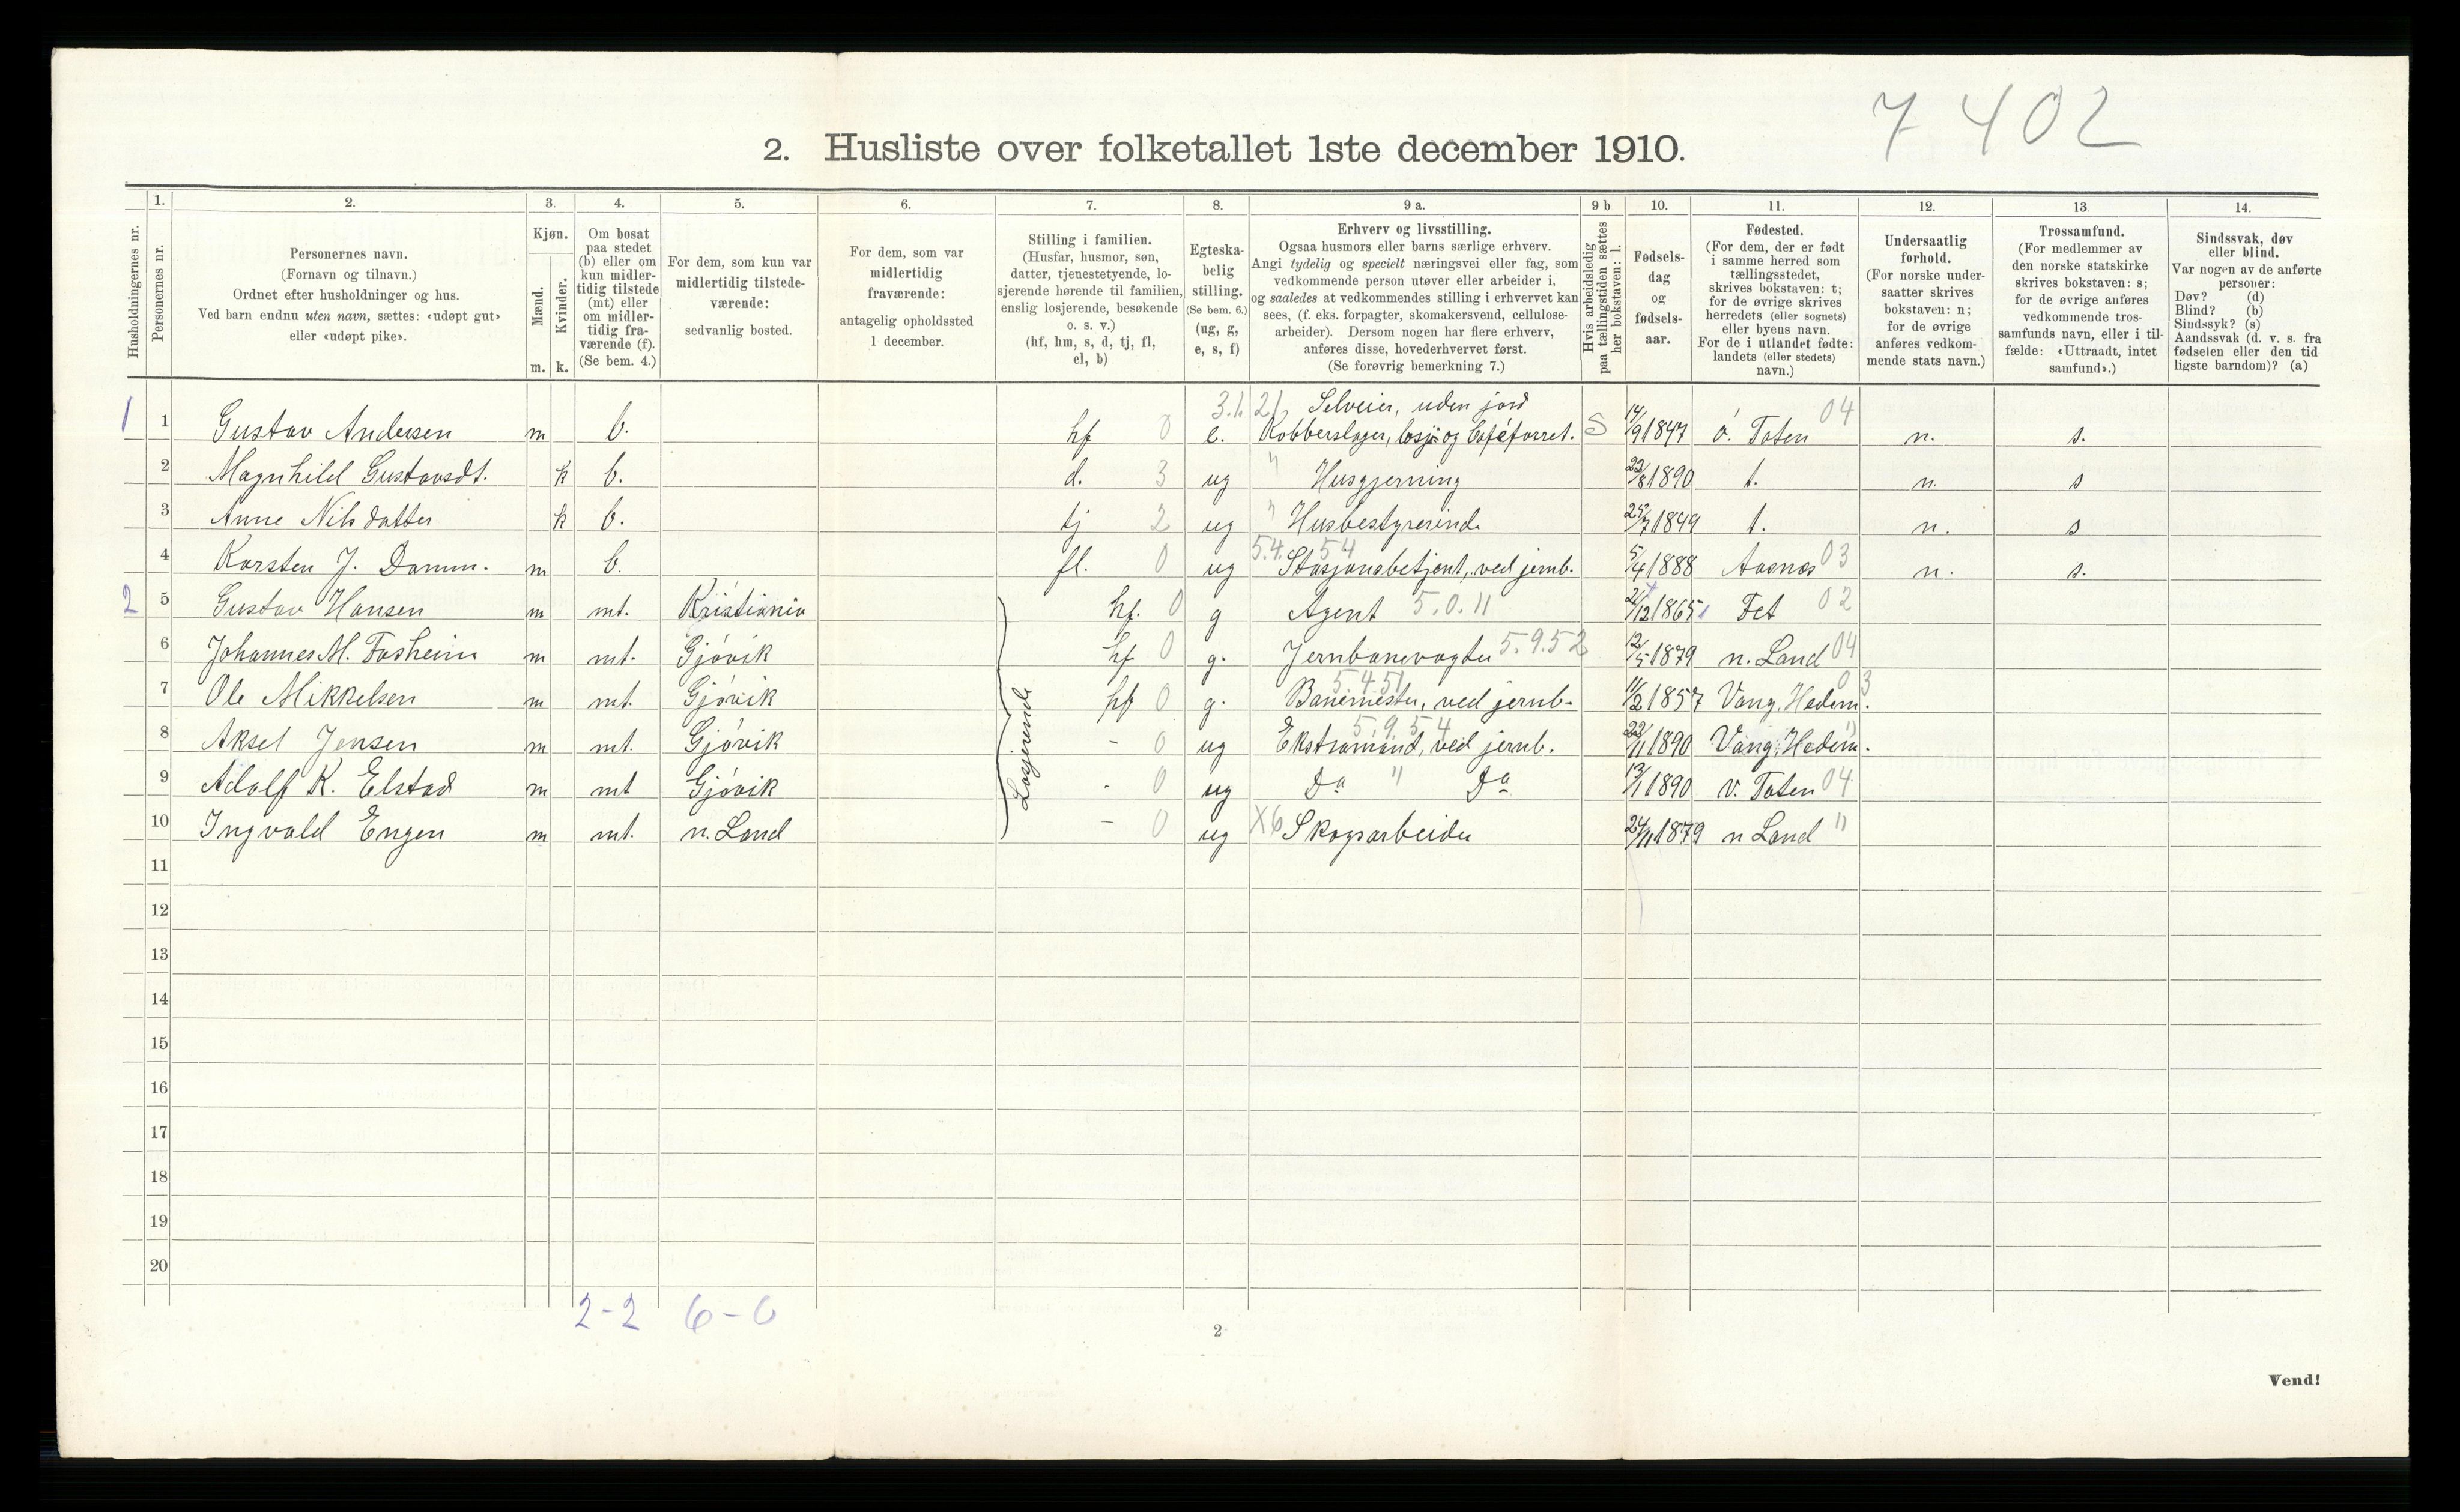 7 402
2. Husliste over folketallet 1ste december 1910.
Husholdningernes nr.
1.
Personernes nr.
2.
Personernes navn.
(Fornavn og tilnavn.)
Ordnet efter husholdninger og hus.
Ved barn endnu uten navn, sættes: «udøpt gut»
eller «udøpt pike».
3.
Kjøn.
Mænd.
Kvinder.
m. k.
4.
Om bosat
paa stedet
(b) eller om
kun midler-
tidig tilstede
(mt) eller
om midler-
tidig fra-
værende (f).
(Se bem. 4.)
5.
For dem, som kun var
midlertidig tilstede-
værende:
sedvanlig bosted.
6.
For dem, som var
midlertidig
fraværende:
antagelig opholdssted
1 december.
7.
Stilling i familien.
(Husfar, husmor, søn,
datter, tjenestetyende, lo-
sjerende hørende til familien,
enslig losjerende, besøkende
o. s. v.)
(hf, hm, s, d, tj, fl,
el, b)
8.
Egteska-
belig
stilling.
(Se bem. 6.)
(ug, g,
e, s, f)
9 a.
Erhverv og livsstilling.
Ogsaa husmors eller barns særlige erhverv.
Angi tydelig og specielt næringsvei eller fag, som
vedkommende person utøver eller arbeider i,
og saaledes at vedkommendes stilling i erhvervet kan
sees, (f. eks. forpagter, skomakersvend, cellulose-
arbeider). Dersom nogen har flere erhverv,
anføres disse, hovederhvervet først.
(Se forøvrig bemerkning 7.)
9 b
Hvis arbeidsledig
paa tællingstiden sættes
her bokstaven: l.
10.
Fødsels-
dag
og
fødsels-
aar.
11.
Fødested.
(For dem, der er født
i samme herred som
tællingsstedet,
skrives bokstaven: t;
for de øvrige skrives
herredets (eller sognets)
eller byens navn.
For de i utlandet fødte:
landets (eller stedets)
navn.)
12.
Undersaatlig
forhold.
(For norske under-
saatter skrives
bokstaven: n;
for de øvrige
anføres vedkom-
mende stats navn.)
13.
Trossamfund.
(For medlemmer av
den norske statskirke
skrives bokstaven: s;
for de øvrige anføres
vedkommende tros-
samfunds navn, eller i til-
fælde: «Uttraadt, intet
samfund».)
14.
Sindssvak, døv
eller blind.
Var nogen av de anførte
personer:
Døv? (d)
Blind? (b)
Sindssyk? (s)
Aandssvak (d. v. s. fra
fødselen eller den tid
ligste barndom)? (a)
3.1.21 Selveier, uden jord 04
1 1 Gustav Andersen m b. hf 0 e. Kobberslager, losji og Caféforret. S 14/9 1847 ö. Toten n. s.
2 Magnhild Gustavsdt. k b. d. 3 ug " Husgjerning 22/8 1890 t. n. s
3 Anne Nilsdatter k b. tj 2 ug " Husbestyrerinde 25/7 1849 t. n. s
5.4. 54
4 Karsten J. Damm. m b. fl. 0 ug Stasjonsbetjent, ved jernb. 5/4 1888 Aasnes 03 n. s.
2 5 Gustav Hansen m mt. Kristiania hf. 0 g Agent 5.0.11 2/12 1865 Fet 02
6 Johannes M. Fosheim m mt. Gjövik hf 0 g. Jernbanevogter 5.9.52 12/5 1879 n. Land 04
5 4 51 03
7 Ole Mikkelsen m mt. Gjövik hf 0 g. Banemester, ved jernb. 11/2 1857 Vang, Hedem.
Losjerende
5.9.54 "
8 Aksel Jensen m mt. Gjövik - 0 ug Ekstramand, ved jernb. 22/11 1890 Vang, Hedem.
9 Adolf K. Elstad m mt Gjövik - 0 ug Do " Do 13/1 1890 v. Toten 04
10 Ingvald Engen m mt. n. Land - 0 ug X6 Skogsarbeider 24/11 1879 n Land "
11
12
13
14
15
16
17
18
19
20
2-2 6-0
2
Vend!